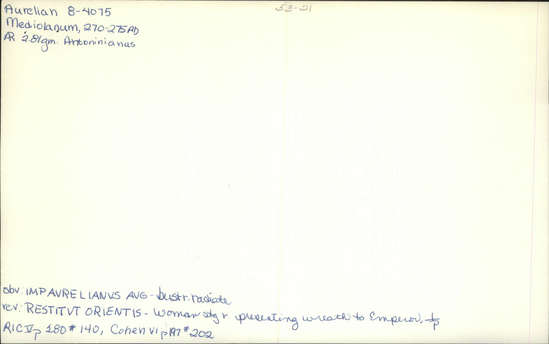 53-21
Aurelian 8-4075
Mediolanum, 270-275AD
AR 2.81gm. Antoninianus
obv. IMPAVRELIANVS AVG - bust r. radiate
rev. RESTITVT ORIENTIS - Woman stg r presenting wreath to Emperor.
RIC V p 280 # 140, Cohen VI p # 202